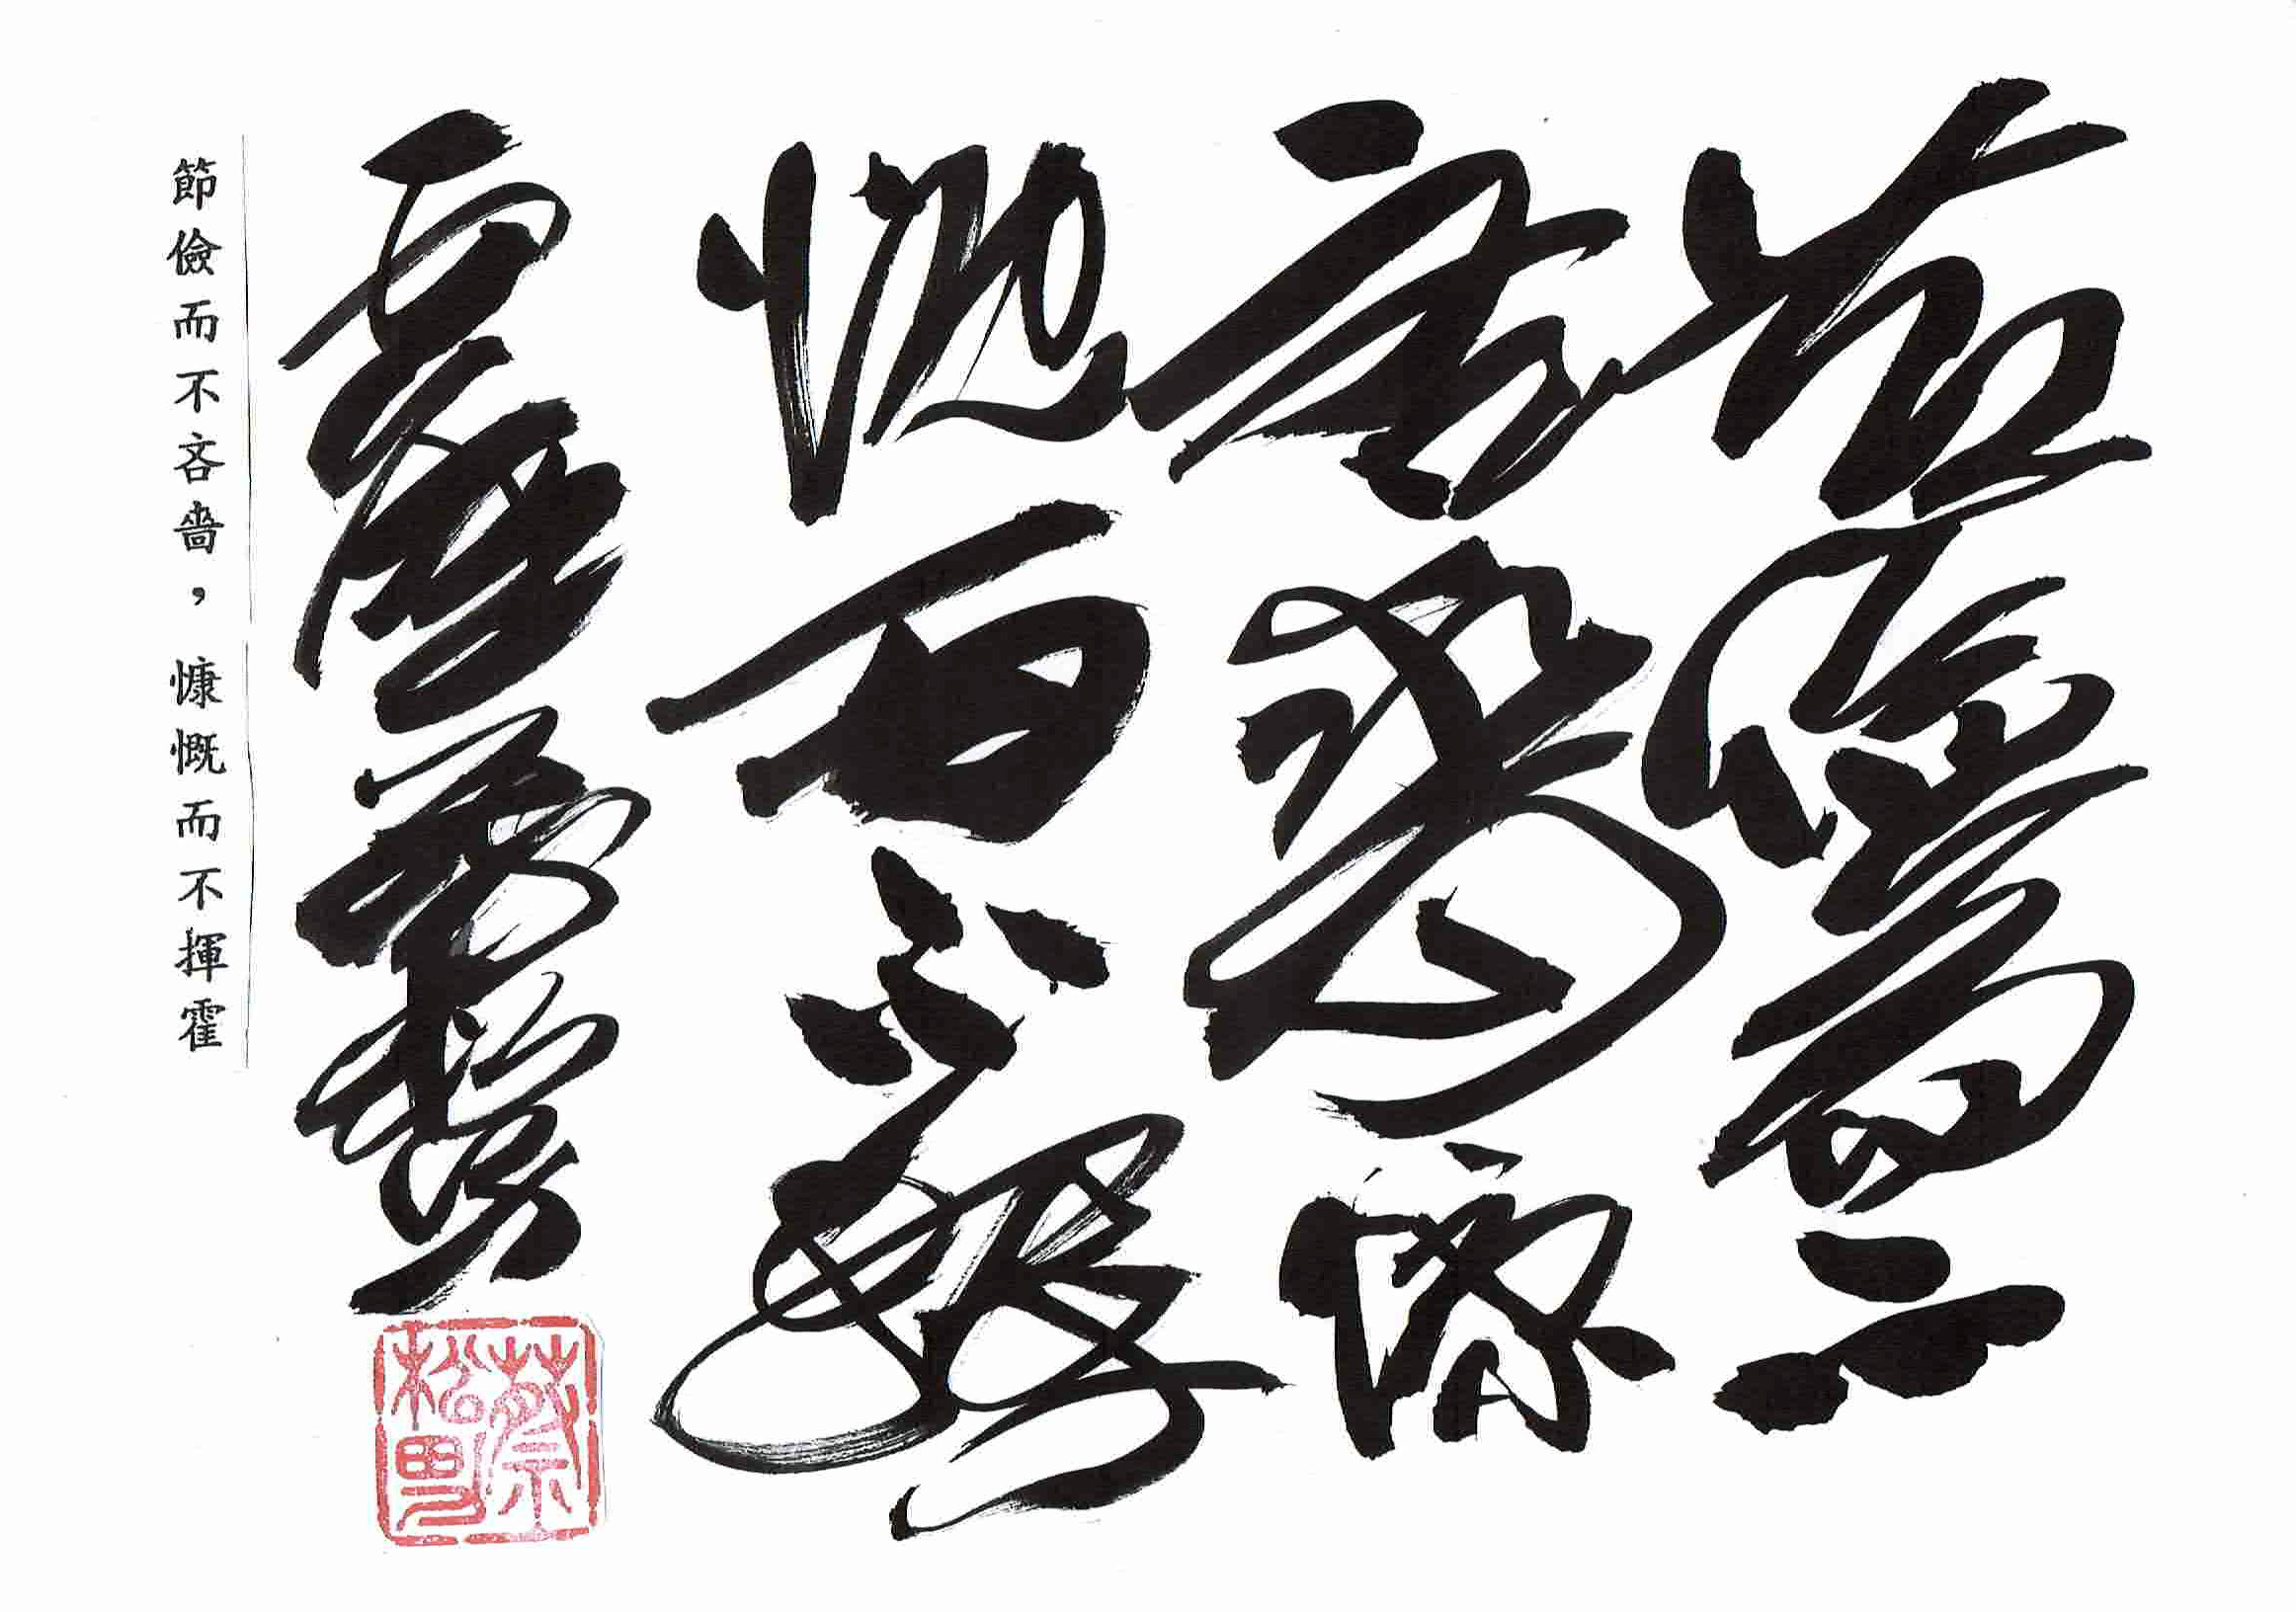 節儉而不
吝嗇慷
慨而不揮
霍蔡松男
蔡松男
節儉而不吝嗇，慷慨而不揮霍